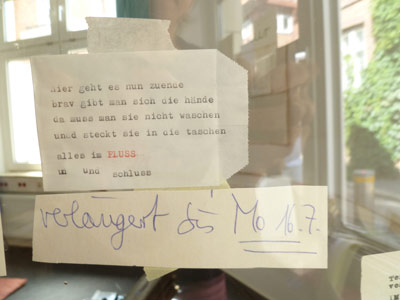 hier geht es nun zuende
brav gibt man sich die hände
da muss man sie nicht waschen
und steckt sie in die taschen
alles im FLUSS
un und schluss
verlängert bis Mo 16.7.